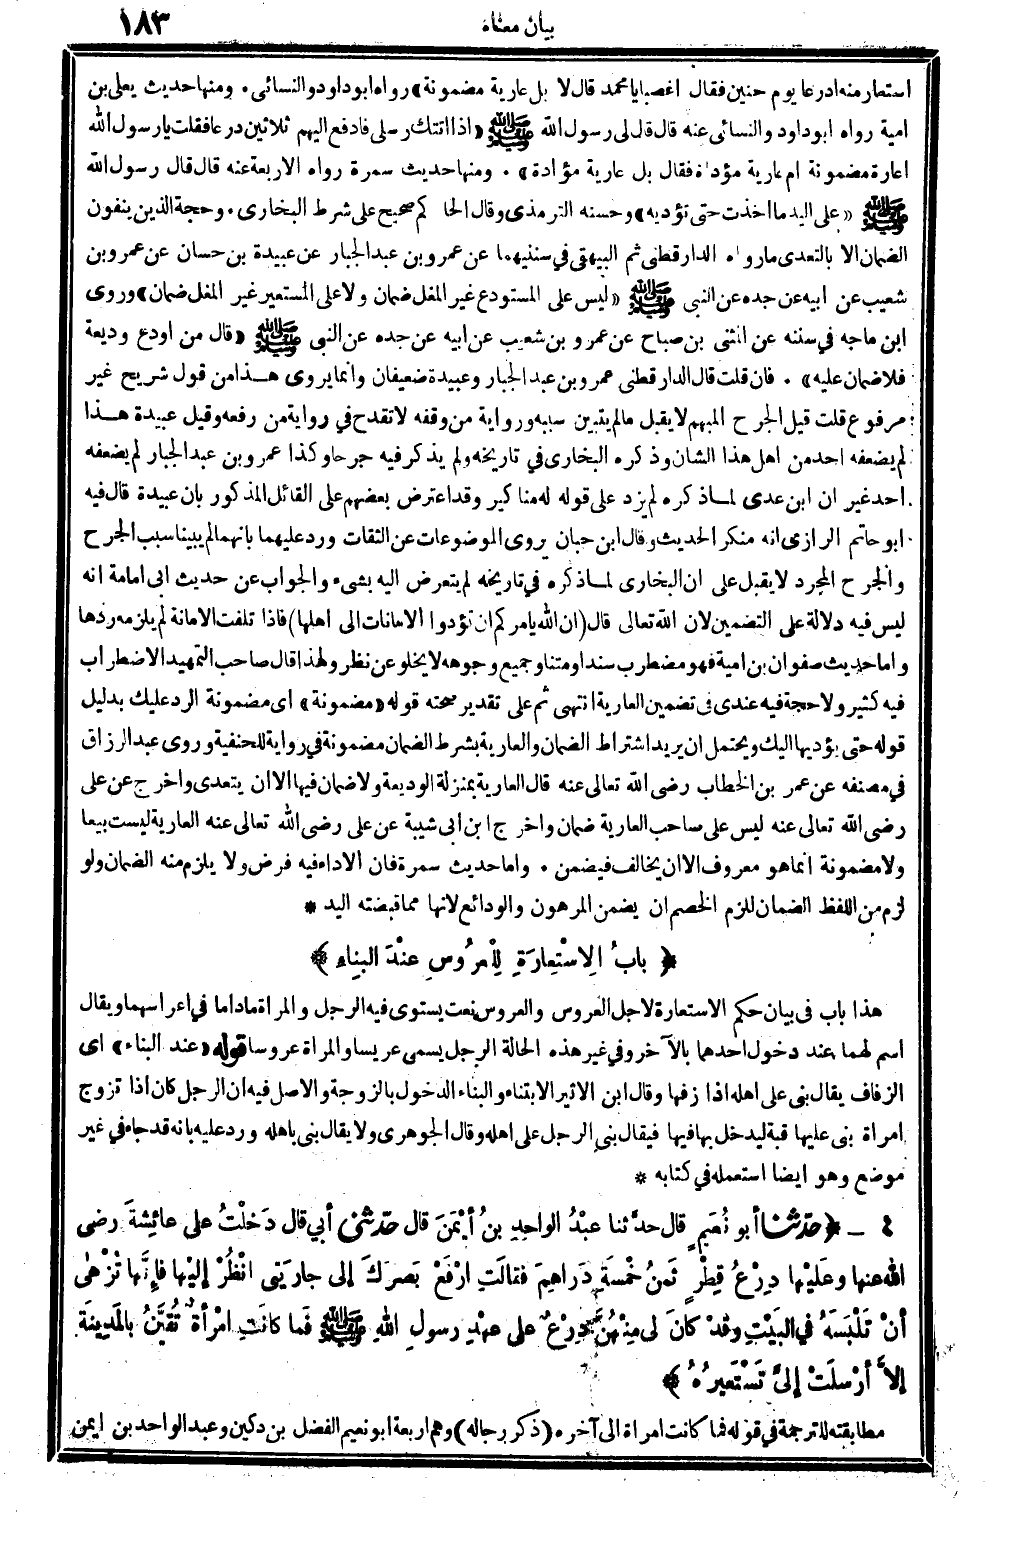 بيان معناه ١٨٣
استعار منه ادرعا يوم حنين فقال اغصبا يا محمد قال لا بل عارية مضمونة» رواه ابو داود والنسائى . ومنها حديث يعلى بن
امية رواه ابو داود والنسائى عنه قال قال لى رسول الله ﷺ «اذا اتتك رسلى فادفع اليهم ثلاثين درعا فقلت يا رسول الله
اعارة مضمونة ام عارية مؤداة فقال بل عارية مؤداة» . ومنها حديث سمرة رواه الاربعة عنه قال قال رسول الله
ﷺ «على اليد ما اخذت حتى تؤديه» وحسنه الترمذى وقال الحاكم صحيح على شرط البخارى . وحجة الذين ينفون
الضمان الا بالتعدى ما رواه الدارقطنى ثم البيهقى في سننيهما عن عمرو بن عبد الجبار عن عبيدة بن حسان عن عمرو بن
شعيب عن ابيه عن جده عن النبى ﷺ «ليس على المستودع غير المغل ضمان ولا على المستعير غير المغل ضمان» وروى
ابن ماجه في سننه عن المثنى بن صباح عن عمرو بن شعيب عن ابيه عن جده عن النبى ﷺ «قال من اودع وديعة
فلا ضمان عليه» . فان قلت قال الدارقطنى عمرو بن عبد الجبار وعبيدة ضعيفان وانما يروى هذا من قول شريح غير
مرفوع قلت قيل الجرح المبهم لا يقبل ما لم يتبين سببه ورواية من وقفه لا تقدح في رواية من رفعه وقيل عبيدة هذا
لم يضعفه احد من اهل هذا الشان وذكره البخارى في تاريخه ولم يذكر فيه جرحا وكذا عمرو بن عبد الجبار لم يضعفه
احد غير ان ابن عدى لما ذكره لم يزد على قوله له مناكير وقد اعترض بعضهم على القائل المذكور بان عبيدة قال فيه
ابو حاتم الرازى انه منكر الحديث وقال ابن حبان يروى الموضوعات عن الثقات ورد عليهما بانهما لم يبينا سبب الجرح
والجرح المجرد لا يقبل على ان البخارى لما ذكره في تاريخه لم يتعرض اليه بشىء والجواب عن حديث ابى امامة انه
ليس فيه دلالة على التضمين لان الله تعالى قال (ان الله يامركم ان تؤدوا الامانات الى اهلها) فاذا تلفت الامانة لم يلزمه ردها
واما حديث صفوان بن امية فهو مضطرب سندا ومتنا وجميع وجوهه لا يخلو عن نظر ولهذا قال صاحب التمهيد الاضطراب
فيه كثير ولا حجة فيه عندى في تضمين العارية انتهى ثم على تقدير صحته قوله «مضمونة» اى مضمونة الرد عليك بدليل
قوله حتى يؤديها اليك ويحتمل ان يريد اشتراط الضمان والعارية بشرط الضمان مضمونة في رواية للحنفية وروى عبد الرزاق
في مصنفه عن عمر بن الخطاب رضى الله تعالى عنه قال العارية بمنزلة الوديعة ولا ضمان فيها الا ان يتعدى واخرج عن على
رضى الله تعالى عنه ليس على صاحب العارية ضمان واخرج ابن ابى شيبة عن على رضى الله تعالى عنه العارية ليست بيعا
ولا مضمونة انما هو معروف الا ان يخالف فيضمن . واما حديث سمرة فان الاداء فيه فرض ولا يلزم منه الضمان ولو
لزم من اللفظ الضمان للزم الخصم ان يضمن المرهون والودائع لانها مما قبضته اليد *
﴿ بابُ الِاسْتِعارَةِ لِلْعرُوسِ عِنْدَ البِناءِ ﴾
هذا باب في بيان حكم الاستعارة لاجل العروس والعروس نعت يستوى فيه الرجل والمراة ما داما في اعراسهما ويقال
اسم لهما عند دخول احدهما بالآخر وفي غير هذه الحالة الرجل يسمى عريسا والمراة عروسا قوله «عند البناء» اى
الزفاف يقال بنى على اهله اذا زفها وقال ابن الاثير الابتناء والبناء الدخول بالزوجة والاصل فيه ان الرجل كان اذا تزوج
امراة بنى عليها قبة ليدخل بها فيها فيقال بنى الرجل على اهله وقال الجوهرى ولا يقال بنى باهله ورد عليه بانه قد جاء في غير
موضع وهو ايضا استعمله في كتابه *
٤ ـ ﴿حدّثنا أبو نُعَيمٍ قال حدَّثنا عبْدُ الواحِدِ بنُ أيْمَنَ قال حدّثنى أبي قال دَخلْتُ على عائِشةَ رضى
الله عنها وعَليْها دِرْعُ قِطْرٍ ثَمنُ خْمسةِ دَراهِمَ فقالَتِ ارْفَعْ بَصرَكَ إلى جارِيَتى انْظُرْ إليْها فإنَّها تُزْهَى
أنْ تَلْبَسَهُ في البَيْتِ وقدْ كانَ لى مِنْهُنَّ دِرْعٌ على عهْدِ رسولِ اللهِ ﷺ فَما كانَتِ امْرأةٌ تُقيَّنُ بالمَدِينَةِ
إلاَّ أرْسلَتْ إلىَّ تَسْتَعِيرُهُ﴾
مطابقته للترجمة في قوله فما كانت امراة الى آخره (ذكر رجاله) وهم اربعة ابو نعيم الفضل بن دكين وعبد الواحد بن ايمن